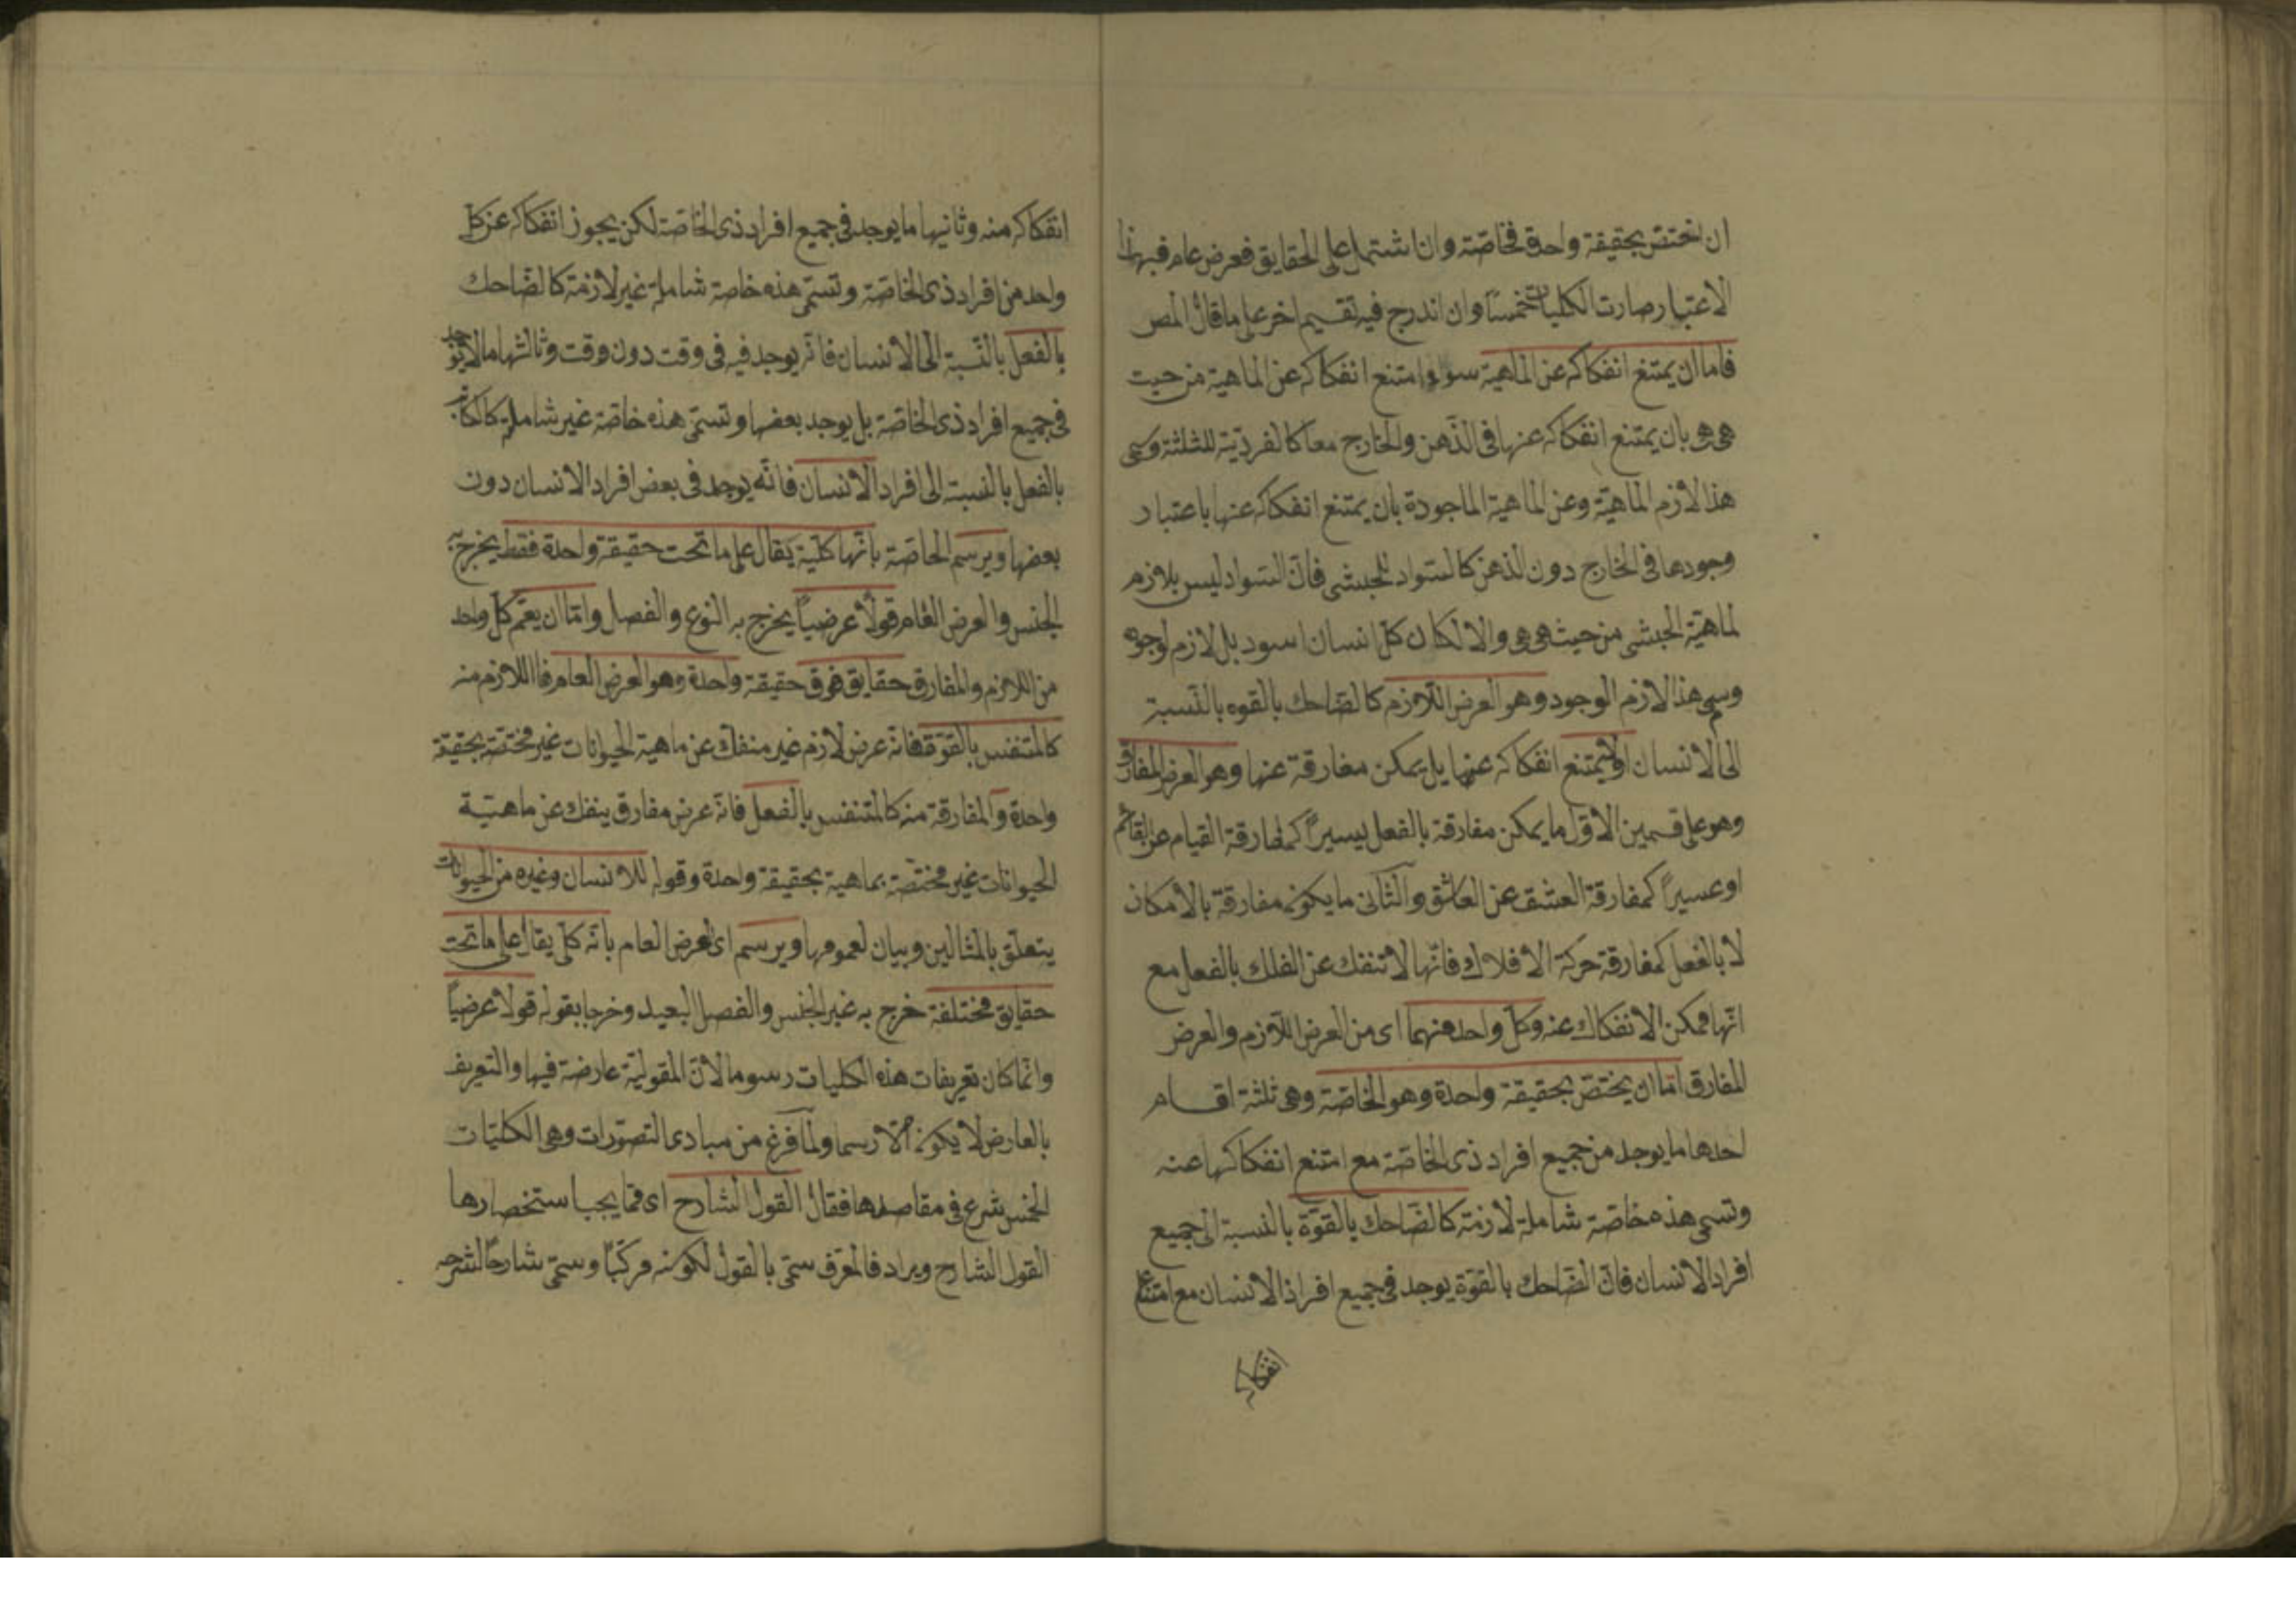 ان اختص بحقيقة واحدة فخاصة وان اشتمل على الحقايق فعرض عام فبهذا
الاعتبار صارت الكليات خمسا وان اندرج فيه تقسيم اخر على ما قال المص
فاما ان يمتنع انفكاكه عن الماهية سواء امتنع انفكاكه عن الماهية من حيث
هى هى بان يمتنع انفكاكه عنها فى الذهن والخارج معا كالفرديّة للثلثة وسمى
هذا لازم الماهيّة وعن الماهية الماجودة بان يمتنع انفكاكه عنها باعتبار
وجودها فى الخارج دون الذهن كالسّواد للحبشى فانّ السّواد ليس بلازم
لماهيّة الحبشى من حيث هى هى والا لكان كلّ انسان اسود بل لازم لوجوده
وسمى هذا لازم الوجود وهو العرض اللّازم كالضّاحك بالقوه بالنّسبة
الى الانسان اولا يمتنع انفكاكه عنها بل يمكن مفارقة عنها وهو العرض المفارق
وهو على قسمين الاوّل ما يمكن مفارقة بالفعل يسيراً كمفارقة القيام عن القائم
او عسيراً كمفارقة العشق عن العاشق والثّانى ما يكون مفارقة بالامكان
لا بالفعل كمفارقة حركة الافلاك فانّها لا تنفك عن الفلك بالفعل مع
انّها ممكن الانفكاك عنه وكلّ واحد منهما اى من العرض اللّازم والعرض
المفارق امّا ان يختصّ بحقيقة واحدة وهو الخاصّة وهى ثلثة اقسام
احدها ما يوجد من جميع افراد ذى الخاصّة مع امتنع انفكاكها عنه
وتسمى هذه خاصة شاملة لازمة كالضّاحك بالقوّة بالنسبة الى جميع
افراد الانسان فانّ الضّاحك بالقوّة يوجد فى جميع افراد الانسان مع امتناع
انفكاكه
انفكاكه منه وثانيها ما يوجد فى جميع افراد ذى الخاصّة لكن يجوز انفكاكه عن كلّ
واحد من افراد ذى الخاصّة وتسمّى هذه خاصة شاملة غير لازمة كالضّاحك
بالفعل بالنّسبة الى الانسان فانّه يوجد فيه فى وقت دون وقت وثالثها ما لا يوجد
فى جميع افراد ذى الخاصّة بل يوجد بعضها وتسمّى هذه خاصّة غير شاملة كالكاتب
بالفعل بالنسبة الى افراد الانسان فانّه يوجد فى بعض افراد الانسان دون
بعضها ويرسم الخاصّة بانّها كليّة يقال على ما تحت حقيقة واحدة فقط يخرج به
الجنس والعرض العام قولاً عرضيّاً يخرج به النوع والفصل وامّا ان يعمّ كلّ واحد
من اللازم والمفارق حقايق فوق حقيقة واحدة وهو العرض العام فاللازم منه
كالمتنفس بالقوّة فانه عرض لازم غير منفك عن ماهية الحيوانات غير مختصّة بحقيقة
واحدة والمفارقة منه كالمتنفس بالفعل فانّه عرض مفارق ينفك عن ماهيّة
الحيوانات غير مختصّة بماهية بحقيقة واحدة وقوله للانسان وغيره من الحيوانات
يتعلّق بالمثالين وبيان لعمومها ويرسم اى العرض العام بانّه كلّى يقال على ما تحت
حقايق مختلفة خرج به غير الجنس والفصل البعيد وخرجا بقوله قولا عرضيّاً
وانّما كان تعريفات هذه الكليات رسوما لانّ المقوليّة عارضة فيها والتعريف
بالعارض لا يكون الّا رسما ولمّا فرغ من مبادى التصوّرات وهى الكليّات
الخمس شرع فى مقاصدها فقال القول الشارح اى فما يجب استحضارها
القول الشارح ويراد فالمعرّف سمّى بالقول لكونه مركّباً وسمّى شارحاً لشرحه